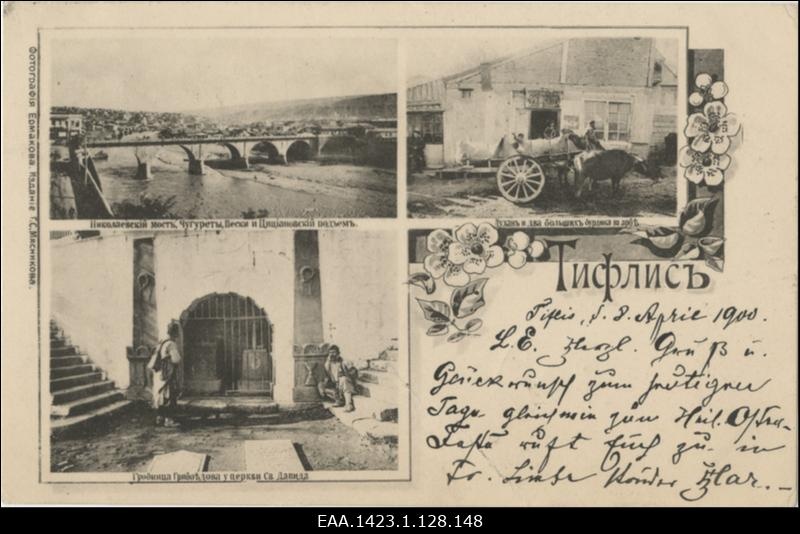 Фотографія Ермакова. Изданіе Г.С. Мясникова.
Николаевскій мостъ, Чугуреты, Пески и Циціановскій подъемъ.
Духанъ и два большихъ бурдюка на арбѣ.
Тифлисъ
Tiflis, d. 8. April 1900.
L. E. Herzl. Gruß u.
Glückwunsch zum heutigen
Tage gleichwie zum Heil. Oster-
Feste ruft Euch zu in
Tr. Liebe
Гробница Грибоѣдова у церкви Св. Давида
EAA.1423.1.128.148